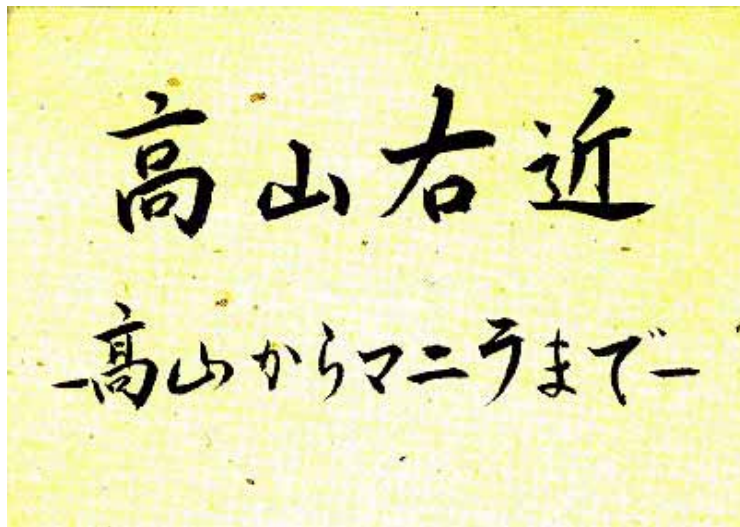 高山右近
−髙山からマニラまで−